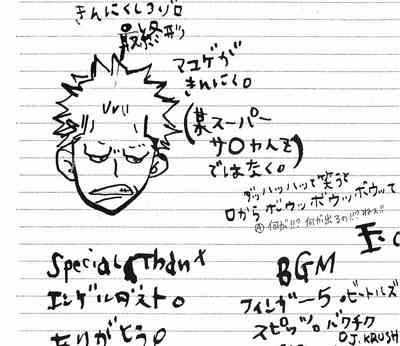 きんにくしろう。
最終形
マユゲが
きんにく。
(某スーパー
サ○ヤ人ｾﾞ
ではなく。)
ダッハッハッと笑うと
口からボウッボウッボウッて
何が!!? 何が出るの!!?
Special Thanx
エンゲルダスト。
ありがとう。
BGM
フィンガー5・ビートルズ
スピッツ。バクチク
DJ.KRUSH